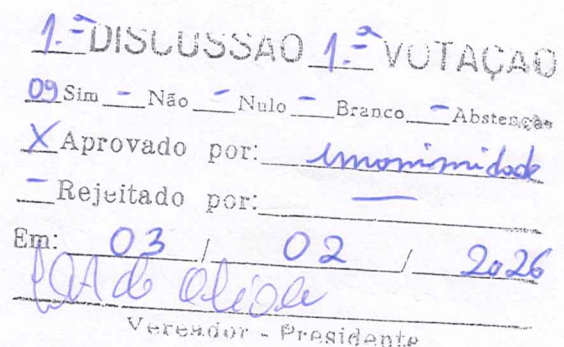 1.ª DISCUSSÃO 1.ª VOTAÇÃO
09 Sim - Não - Nulo - Branco - Abstenção
X Aprovado por: unanimidade
- Rejeitado por: —
Em: 03 / 02 / 2026
Vereador - Presidente